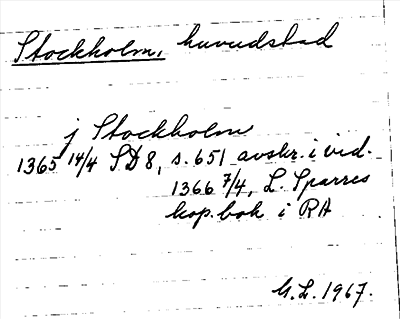 Stockholm, huvudstad
j Stockholm
1365 14/4 SD 8, s. 651 avskr. i vid.
1366 7/4, L. Sparres
kop.bok i RA
G.L. 1967.